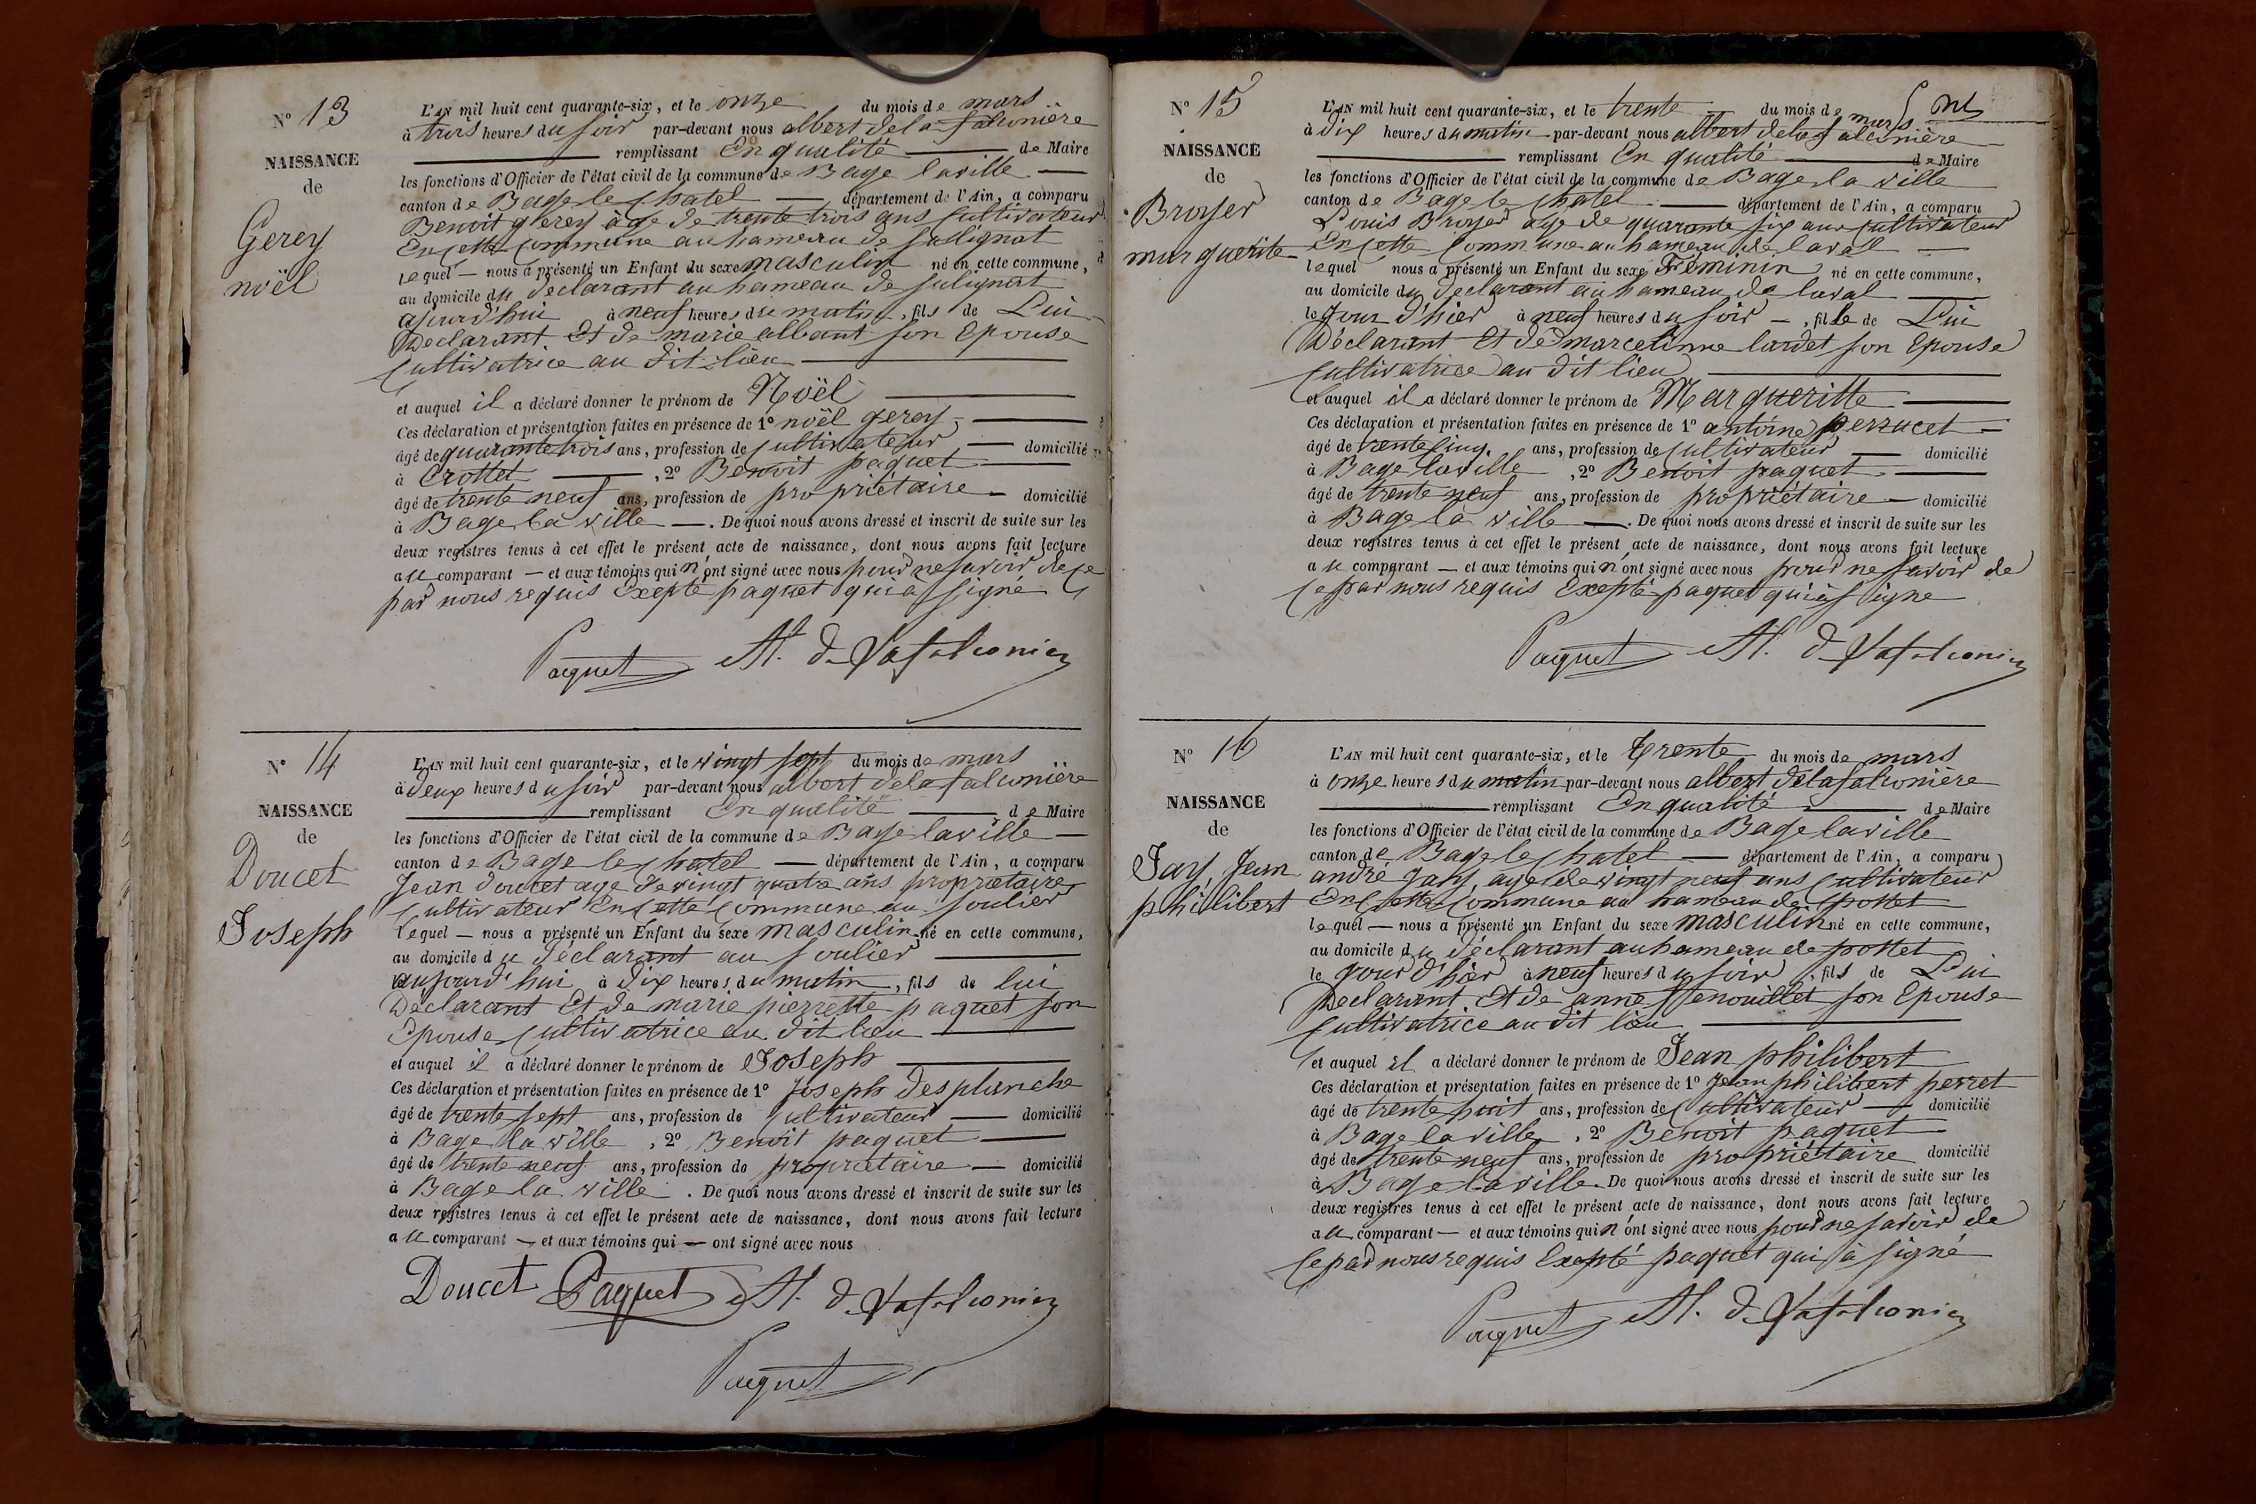 N° 13
NAISSANCE
de
Gerey
noël
L'AN mil huit cent quarante-six, et le onze du mois de mars
à trois heures du soir par-devant nous albert delafalconière
remplissant En qualité de Maire
les fonctions d'Officier de l'état civil de la commune de Bage laville
canton de Bage le Chatel département de l'Ain, a comparu
Benoit gerey âge de trente trois ans Cultivateur
En cette Commune au hameau de Sulignat
lequel nous a présenté un Enfant du sexe masculin né en cette commune,
au domicile du declarant au hameau de sulignat
ajourd'hui à neuf heures du matin, fils de Lui
Declarant Et de marie albant son Epouse
Cultivatrice au dit lieu
et auquel il a déclaré donner le prénom de Noël
Ces déclaration et présentation faites en présence de 1° noël gerey
âgé de quarante trois ans, profession de Cultivateur domicilié
à Crottet, 2° Benoit paquet
âgé de trente neuf ans, profession de propriétaire domicilié
à Bage la ville. De quoi nous avons dressé et inscrit de suite sur les
deux registres tenus à cet effet le présent acte de naissance, dont nous avons fait lecture
au comparant et aux témoins qui n'ont signé avec nous pour ne savoir de ce
par nous requis Exepté paquet qui a signé
Paquet Al. de Lafalconière
N° 14
NAISSANCE
de
Doucet
Joseph
L'AN mil huit cent quarante-six, et le vingt sept du mois de mars
à deux heures du soir par-devant nous albert delafalconière
remplissant En qualité de Maire
les fonctions d'Officier de l'état civil de la commune de Bage laville
canton de Bage le Chatel département de l'Ain, a comparu
Jean doucet age de vingt quatre ans propriétaire
Cultivateur En cette Commune au soulier
lequel nous a présenté un Enfant du sexe masculin né en cette commune,
au domicile du déclarant au soulier
aujourd'hui à dix heures du matin, fils de lui
Déclarant Et de marie pierrette paquet son
Epouse Cultivatrice au dit lieu
et auquel il a déclaré donner le prénom de Joseph
Ces déclaration et présentation faites en présence de 1° Joseph desplanche
âgé de trente sept ans, profession de Cultivateur domicilié
à Bage la ville, 2° Benoit paquet
âgé de trente neuf ans, profession de propriétaire domicilié
à Bage la ville. De quoi nous avons dressé et inscrit de suite sur les
deux registres tenus à cet effet le présent acte de naissance, dont nous avons fait lecture
au comparant et aux témoins qui ont signé avec nous
Doucet Paquet Al. de Lafalconière
Paquet
N° 15
NAISSANCE
de
Broyer
marguerite
L'AN mil huit cent quarante-six, et le trente du mois de mars
à dix heures du matin par-devant nous albert delafalconière
remplissant En qualité de Maire
les fonctions d'Officier de l'état civil de la commune de Bage la ville
canton de Bage le Chatel département de l'Ain, a comparu
Louis Broyer age de quarante six ans Cultivateur
En cette Commune au hameau de laval
lequel nous a présenté un Enfant du sexe Féminin né en cette commune,
au domicile du declarant au hameau de laval
le Jour d'hier à neuf heures du soir, fille de Lui
Déclarant Et de marcelinne lardet son Epouse
Cultivatrice au dit lieu
et auquel il a déclaré donner le prénom de Margueritte
Ces déclaration et présentation faites en présence de 1° antoine perrucet
âgé de trente Cinq ans, profession de Cultivateur domicilié
à Bage laville, 2° Benoit paquet
âgé de trente neuf ans, profession de propriétaire domicilié
à Bage la ville. De quoi nous avons dressé et inscrit de suite sur les
deux registres tenus à cet effet le présent acte de naissance, dont nous avons fait lecture
au comparant et aux témoins qui n'ont signé avec nous pour ne savoir de
ce par nous requis Exepté paquet qui a signe
Paquet Al. de Lafalconière
N° 16
NAISSANCE
de
Jay, Jean
philibert
L'AN mil huit cent quarante-six, et le trente du mois de mars
à onze heures du matin par-devant nous albert delafalconière
remplissant En qualité de Maire
les fonctions d'Officier de l'état civil de la commune de Bage laville
canton de Bage le Chatel département de l'Ain, a comparu
andré Jay, age de vingt neuf ans Cultivateur
En Cette Commune au hameau de pottet
lequel nous a présenté un Enfant du sexe masculin né en cette commune,
au domicile du déclarant au hameau de pottet
le jour d'hier à neuf heures du soir, fils de Lui
Declarant Et de anne fenouillet son Epouse
Cultivatrice au dit lieu
et auquel il a déclaré donner le prénom de Jean philibert
Ces déclaration et présentation faites en présence de 1° Jean philibert perret
âgé de trente huit ans, profession de Cultivateur domicilié
à Bage la ville, 2° Benoit paquet
âgé de trente neuf ans, profession de propriéttaire domicilié
à Bage la ville. De quoi nous avons dressé et inscrit de suite sur les
deux registres tenus à cet effet le présent acte de naissance, dont nous avons fait lecture
au comparant et aux témoins qui n'ont signé avec nous pour ne savoir de
ce par nous requis Exepté paquet qui à signé
Paquet Al. de Lafalconière